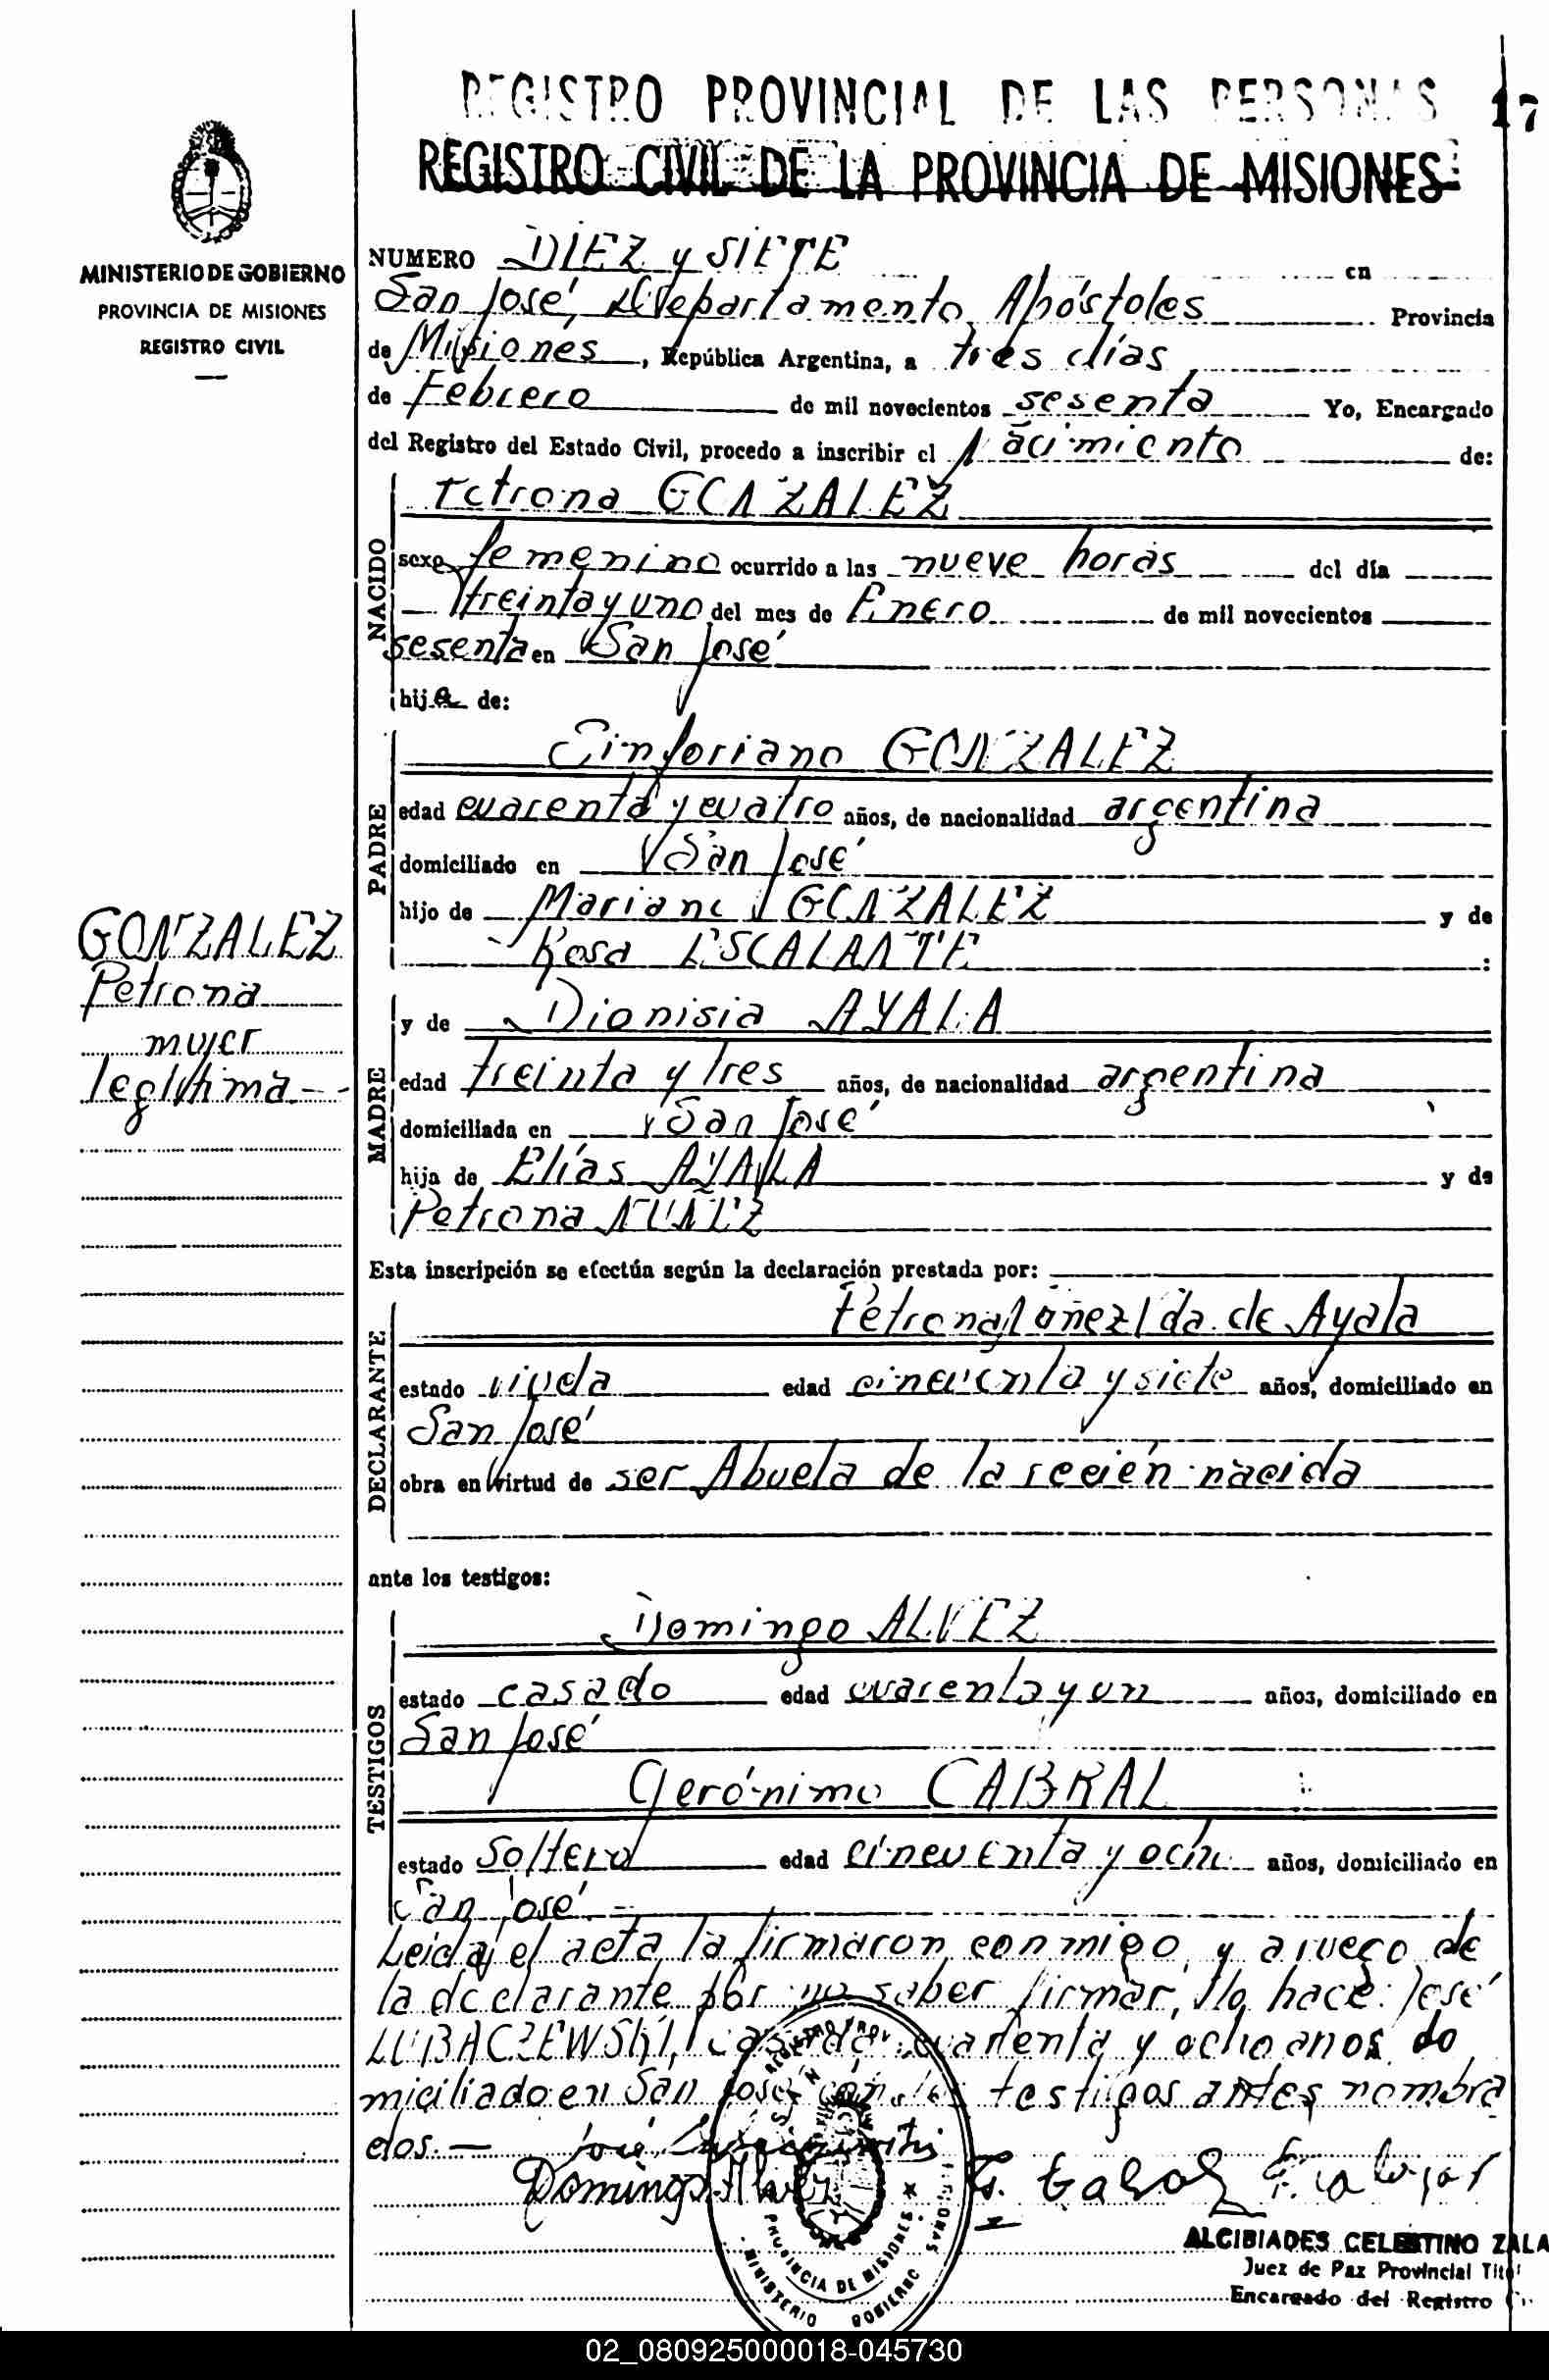 REGISTRO PROVINCIAL DE LAS PERSONAS 17
REGISTRO CIVIL DE LA PROVINCIA DE MISIONES
MINISTERIO DE GOBIERNO
PROVINCIA DE MISIONES
REGISTRO CIVIL
NUMERO DIEZ y SIETE en
San José, Departamento Apóstoles Provincia
de Misiones, República Argentina, a tres días
de Febrero de mil novecientos sesenta Yo, Encargado
del Registro del Estado Civil, procedo a inscribir el Nacimiento de:
NACIDO
Petrona GONZALEZ
sexo femenino ocurrido a las nueve horas del día
treinta y uno del mes de Enero de mil novecientos
sesenta en San José
hija de:
PADRE
Sinforiano GONZALEZ
edad cuarenta y cuatro años, de nacionalidad argentina
domiciliado en San José
hijo de Mariano GONZALEZ y de
Rosa ESCALANTE :
GONZALEZ
Petrona
mujer
legítima
MADRE
y de Dionisia AYALA
edad treinta y tres años, de nacionalidad argentina
domiciliada en San José
hija de Elías AYALA y de
Petrona NUÑEZ
Esta inscripción se efectúa según la declaración prestada por:
DECLARANTE
Petrona Nuñez Vda. de Ayala
estado viuda edad cincuenta y siete años, domiciliado en
San José
obra en virtud de ser Abuela de la recién nacida
ante los testigos:
TESTIGOS
Domingo ALVEZ
estado casado edad cuarenta y un años, domiciliado en
San José
Gerónimo CABRAL
estado Soltero edad cincuenta y ocho años, domiciliado en
San José.-
Leida el acta la firmaron conmigo y a ruego de
la declarante por no saber firmar, lo hace: José
LUBACZEWSKI, casado, cuarenta y ocho anos do
miciliado en San José con los testigos antes nombra
dos.-
Domingo Alvez
ALCIBIADES CELESTINO ZALA
Juez de Paz Provincial Tit
Encargado del Registro
PROVINCIA DE MISIONES
MINISTERIO GOBIERNO
02_080925000018-045730